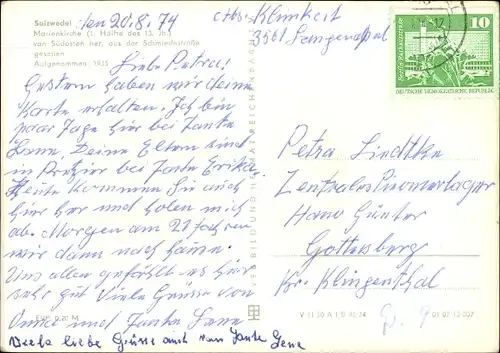 Salzwedel den 20.8.74
Marienkirche (1. Hälfte des 13. Jh.)
von Südosten her, aus der Schmiedestraße
gesehen
Aufgenommen: 1955
Abs. Klinkert
3561 Langenapel
10
Berlin, Rathausstraße
DEUTSCHE DEMOKRATISCHE REPUBLIK
Liebe Petra!
Gestern haben wir deine
Karte erhalten. Ich bin
paar Tage hier bei Tante
Lene, Deine Eltern sind
in Pretzier bei Tante Erika.
Heute kommen Sie auch
hier her und holen mich
ab. Morgen am 21 fahren
wir dann nach hause.
Uns allen gefällt es hier
sehr gut Viele Grüsse von
und Tante Lene
Viele liebe Grüsse auch von Tante Lene
VEB BILD UND HEIMAT REICHENBACH
Petra Liedtke
Zentralespionierlager
Hano Günter
Gottesberg
Kr. Klingenthal
EVP 0,20 M
V 11 50 A 1/B 81/74
01 07 13 007